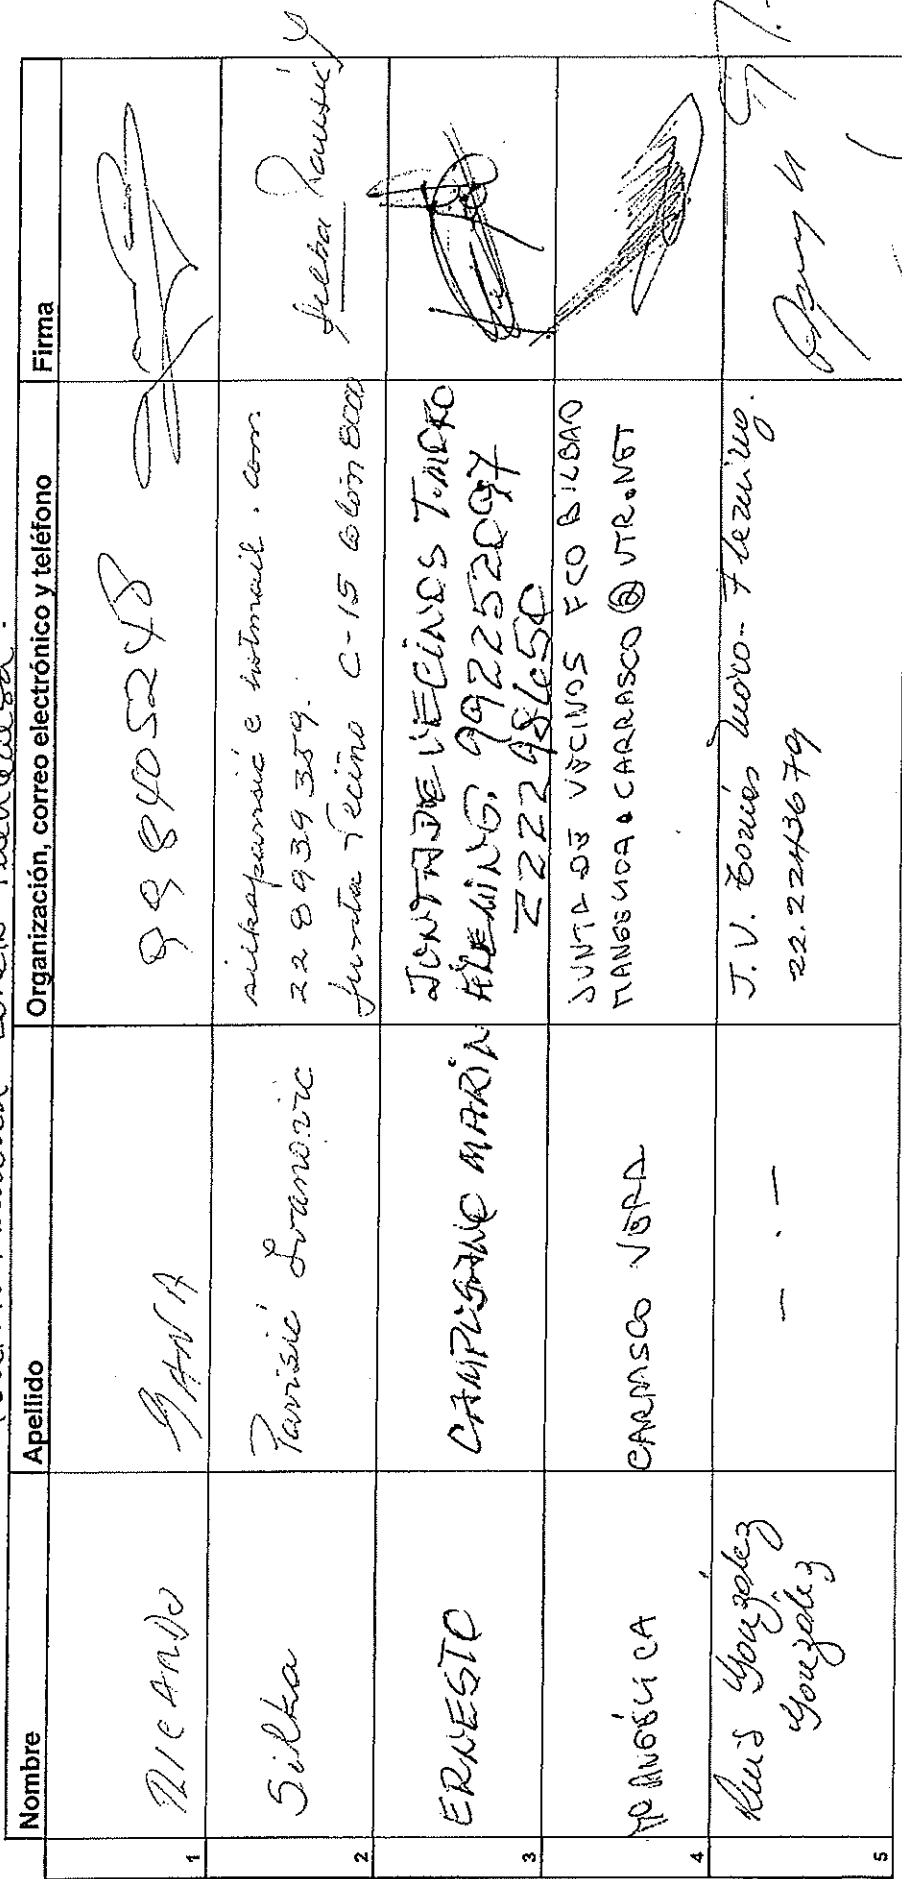 Nombre Apellido Organización, correo electrónico y teléfono Firma
1 RICARDO GANA 998405248
2 Silka Parsić Ivanovic silkaparsić e hotmail.com
228939359.
Junta Vecino C-15 Colón
3 ERNESTO CAMPUSANO MARIN JUNTA DE VECINOS
FLEMING. 992252097
222298650
4 Mª ANGÉLICA CARRASCO VERA JUNTA DE VECINOS FCO BILBAO
MANGELICA.CARRASCO@VTR.NET
5 Luis González — . — J.V. Tomás Moro - Fleming.
González 22.2243679